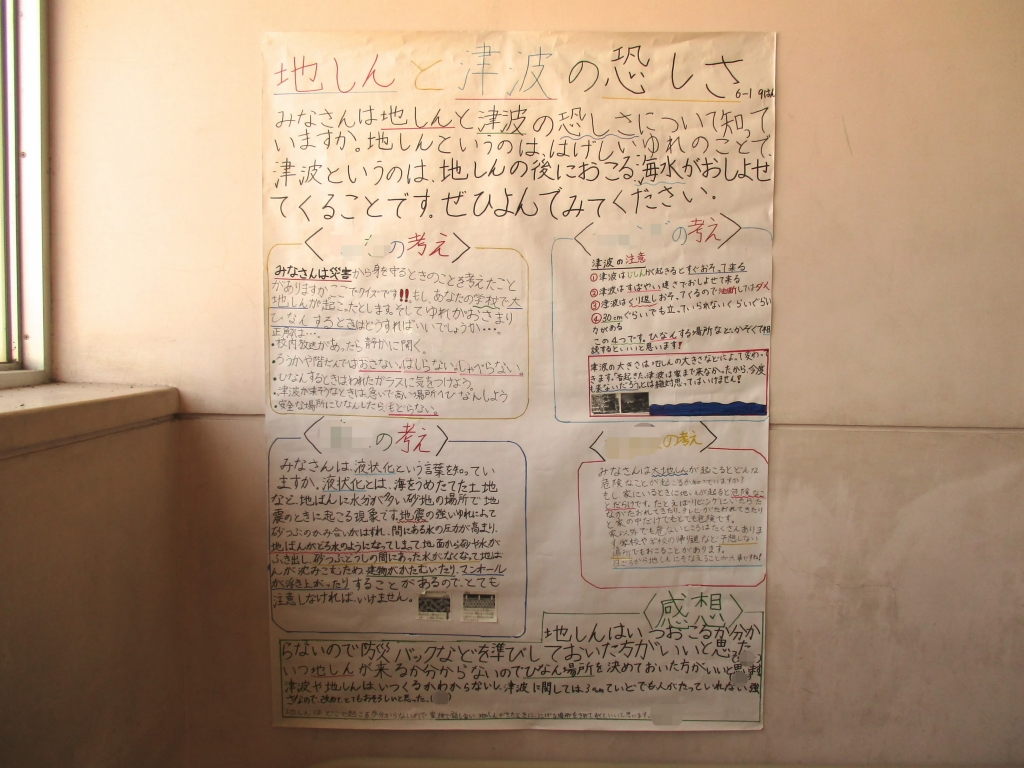 地しんと津波の恐しさ
6-1 9はん
みなさんは地しんと津波の恐しさについて知って
いますか。地しんというのは、はげしいゆれのことで、
津波というのは、地しんの後におこる海水がおしよせ
てくることです。ぜひよんでみてください。
の考え
みなさんは災害から身をするときのことを考えたこと
がありますか?ここでクイズです!!もし、あなたの学校で大
地しんが起こったとします。そしてゆれがおさまり
ひなんするときはどうすればいいでしょうか…。
正解は…
・校内放送があったら静かに聞く。
・ろうかや階だんではおさない、はしらない、しゃべらない。
・ひなんするときはわれたガラスに気をつけよう
・津波が来そうなときは、急いで高い場所へひなんしよう
・安全な場所にひなんしたら、もどらない。
の考え
津波の注意
①津波はじしんが起きるとすぐおそって来る
②津波はすばやい速さでおしよせて来る
③津波はくり返しおそってくるので油断してはダメ
④30cmぐらいでも立っていられないくらいぐらい
力がある
この4つです。ひなんする場所などかぞくで相
談するといいと思います!
津波の大きさは地しんの大きさなどによって変わっ
きます。前起きた津波は家まで来なかったから、今度
も来ないだろうとは絶対思ってはいけません!
の考え
みなさんは、液状化という言葉を知ってい
ますか。液状化とは、海をうめたてた土地
など、地ばんに水分が多い砂地の場所で地
震のときに起こる現象です。地震の強いゆれによて
砂つぶのかみ合いがはずれ、間にある水の圧力が高まり、
地ばんがどろ水のようになってしまって地面から砂や水が
ふき出し、砂つぶどうしの間にあった水がなくなって地ば
んが沈みこむため、建物がかたむいたり、マンホール
が浮き上がったりすることがあるので、とても
注意しなければいけません。
の考え
みなさんは大地しんが起こるとどんな
危険なことが起こるか知っていますか?
もし家にいるときに地しんが起ると危険なこ
とだらけです。たとえばリビングにいたら
なかたおれてきたり、テレビがたおれてきたり
と家の中だけでもとても危険です。
家以外でも危ないところはたくさんありま
学校や学校の帰り道など予想しない
場所でもおこることがあります。
感想
地しんはいつおこるか分か
らないので防災バックなどを準びしておいた方がいいと思った
いつ地しんが来るか分からないのでひなん場所を決めておいた方がいいと思
津波や地しんは、いつくるかわからないし、津波に関しては、30cmていどでも人がたっていれない強
さなので、改めてとてもおそろしいと思った。